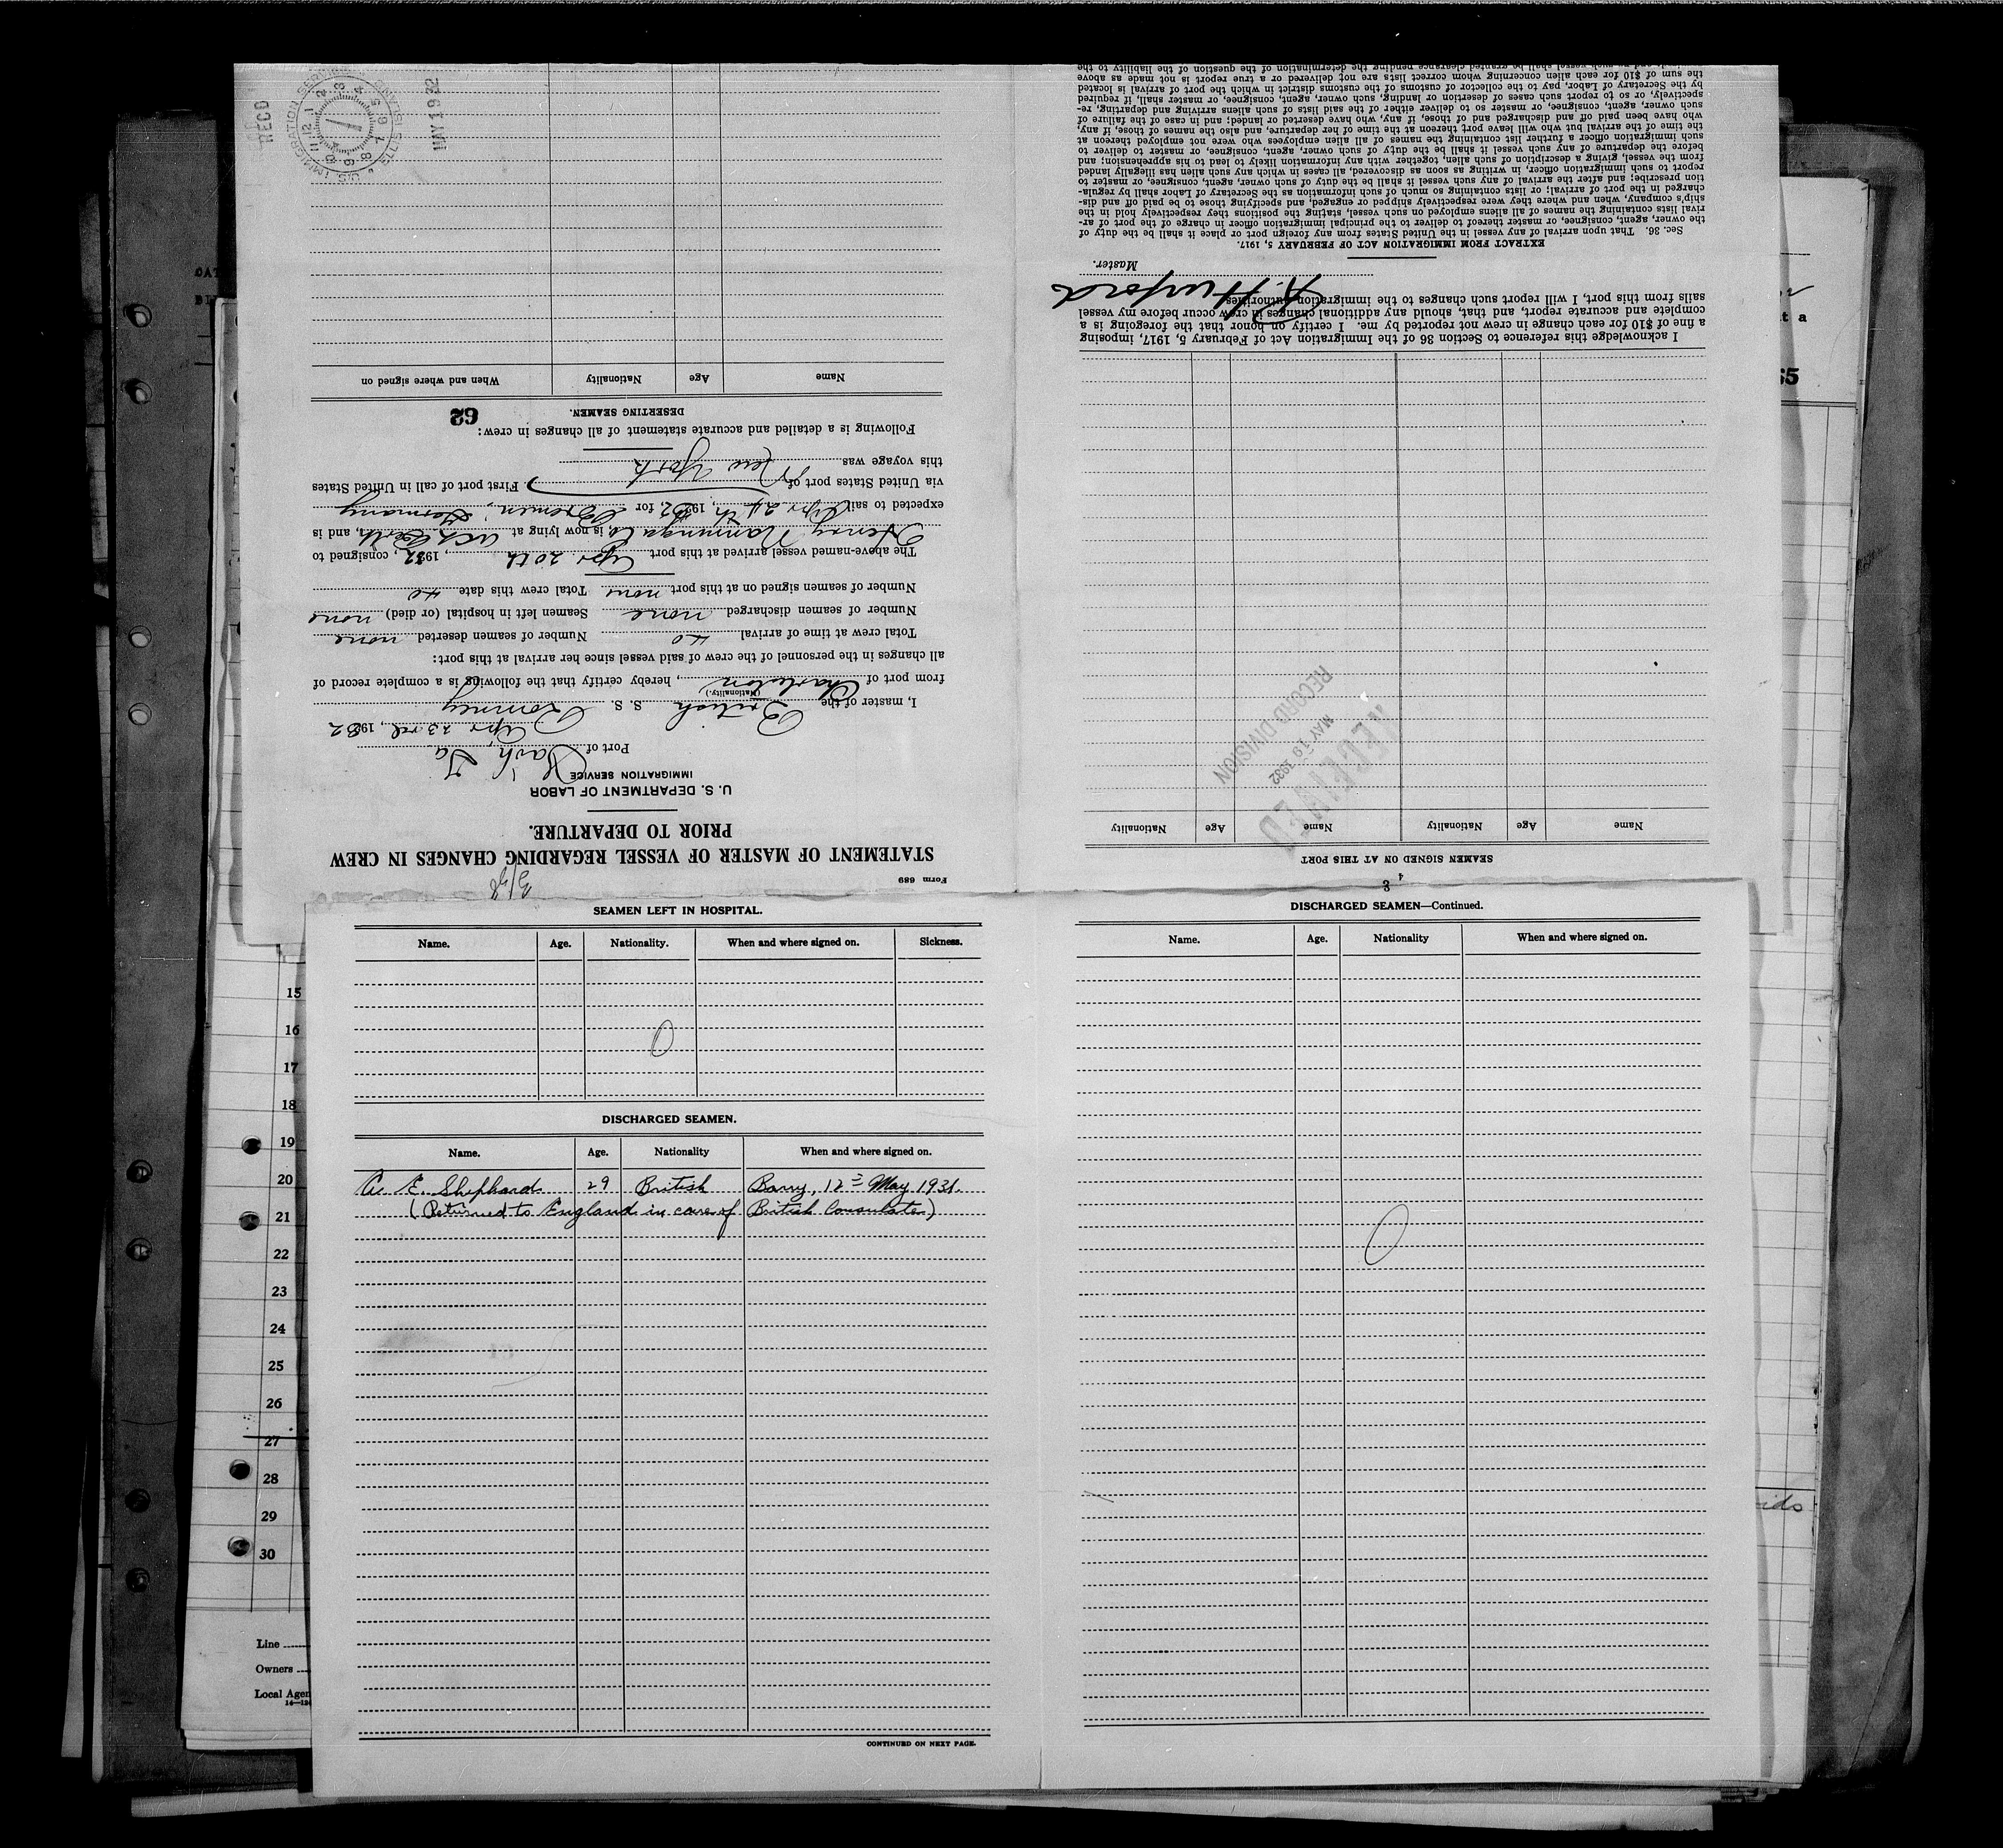 Form 689
STATEMENT OF MASTER OF VESSEL REGARDING CHANGES IN CREW
PRIOR TO DEPARTURE.
U. S. DEPARTMENT OF LABOR
IMMIGRATION SERVICE
Port of Savh, Ga
Apr 23rd, 1932
I, master of the British S. S. Romney
(Nationality.)
from port of Charleston, hereby certify that the following is a complete record of
all changes in the personnel of the crew of said vessel since her arrival at this port:
Total crew at time of arrival 40 Number of seamen deserted none
Number of seamen discharged none Seamen left in hospital (or died) none
Number of seamen signed on at this port none Total crew this date 40
The above-named vessel arrived at this port Apr 20th, 1932, consigned to
Henry Nanninga & Co, is now lying at, and is
expected to sail Apr 24th, 1932, for Bremen, Germany
via United States port of First port of call in United States
this voyage was New York
Following is a detailed and accurate statement of all changes in crew:
DESERTING SEAMEN.
62
Name Age Nationality When and where signed on
REC'D
U.S. IMMIGRATION SERVICE ELLIS ISLAND
12 1 2 3 4 5 6 7 8 9 10 11
MAY 19 32
4
SEAMEN SIGNED ON AT THIS PORT
Name Age Nationality Name Age Nationality
RECEIVED
MAY 19 1932
RECORD DIVISION
I acknowledge this reference to Section 36 of the Immigration Act of February 5, 1917, imposing
a fine of $10 for each change in crew not reported by me. I certify on honor that the foregoing is a
complete and accurate report, and that, should any additional changes in crew occur before my vessel
sails from this port, I will report such changes to the immigration authorities.
Master.
EXTRACT FROM IMMIGRATION ACT OF FEBRUARY 5, 1917.
Sec. 36. That upon arrival of any vessel in the United States from any foreign port or place it shall be the duty of
the owner, agent, consignee, or master thereof to deliver to the principal immigration officer in charge of the port of ar-
rival lists containing the names of all aliens employed on such vessel, stating the positions they respectively hold in the
ship's company, when and where they were respectively shipped or engaged, and specifying those to be paid off and dis-
charged in the port of arrival; or lists containing so much of such information as the Secretary of Labor shall by regula-
tion prescribe; and after the arrival of any such vessel it shall be the duty of such owner, agent, consignee, or master to
report to such immigration officer, in writing, as soon as discovered, all cases in which any such alien has illegally landed
from the vessel, giving a description of such alien, together with any information likely to lead to his apprehension; and
before the departure of any such vessel it shall be the duty of such owner, agent, consignee, or master to deliver to
such immigration officer a further list containing the names of all alien employees who were not employed thereon at
the time of the arrival but who will leave port thereon at the time of her departure, and also the names of those, if any,
who have been paid off and discharged and of those, if any, who have deserted or landed; and in case of the failure of
such owner, agent, consignee, or master so to deliver either of the said lists of such aliens arriving and departing, re-
spectively, or so to report such cases of desertion or landing, such owner, agent, consignee, or master shall, if required
by the Secretary of Labor, pay to the collector of customs of the customs district in which the port of arrival is located
the sum of $10 for each alien concerning whom correct lists are not delivered or a true report is not made as above
SEAMEN LEFT IN HOSPITAL.
Name. Age. Nationality. When and where signed on. Sickness.
0
DISCHARGED SEAMEN.
Name. Age. Nationality When and where signed on.
A. E. Shephard 29 British Barry, 12th May 1931.
(Returned to England in care of British Consulate)
CONTINUED ON NEXT PAGE.
DISCHARGED SEAMEN—Continued.
Name. Age. Nationality When and where signed on.
0
15
16
17
18
19
20
21
22
23
24
25
26
27
28
29
30
Line
Owners
Local Agen